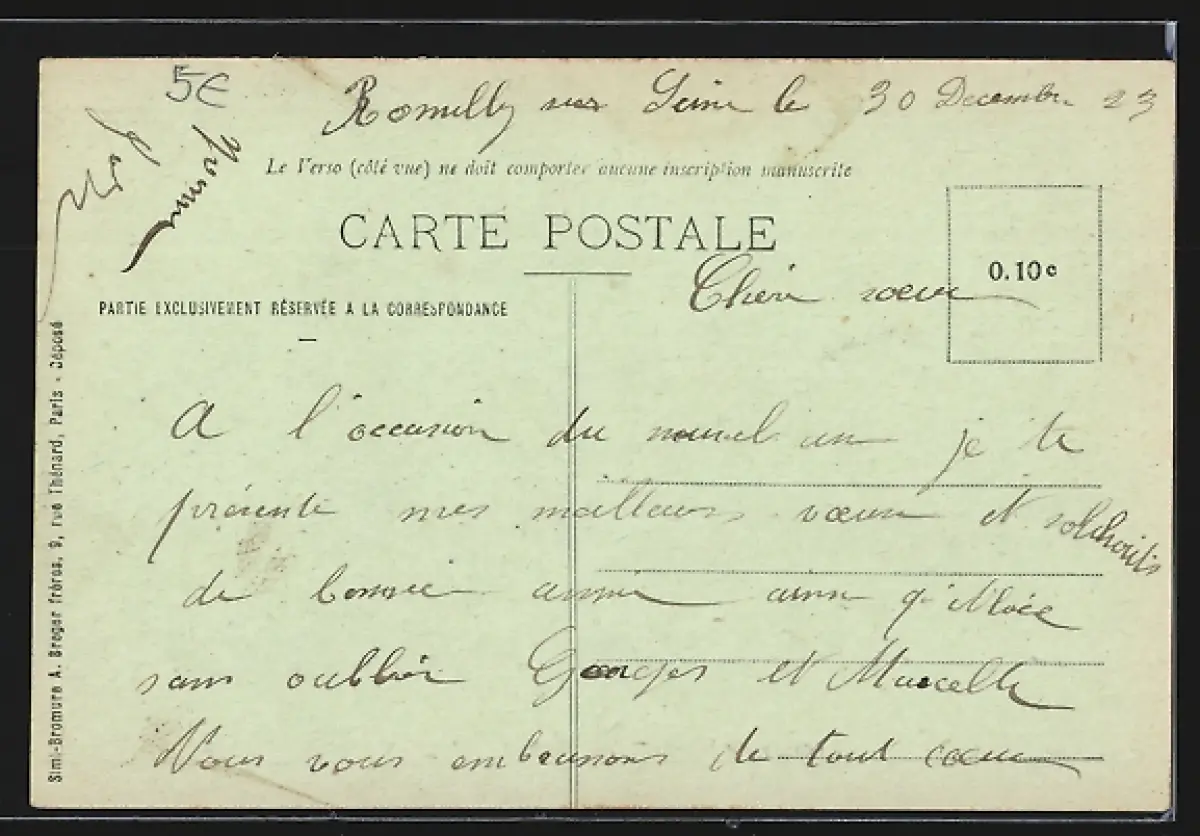 5€
Romilly sur Seine le 30 Decembre 23
Le Verso (côté vue) ne doit comporter aucune inscription manuscrite
CARTE POSTALE
0.10c
Chère soeur
PARTIE EXCLUSIVEMENT RÉSERVÉE A LA CORRESPONDANCE
A l'occasion du nouvel an je te
présente mes meilleurs voeux et
de bonne année ainsi
sans oublier Georges et Marcelle
Nous vous embrassons de tout coeur
Simi-Bromure A. Breger frères, 9, rue Thénard, Paris - Déposé